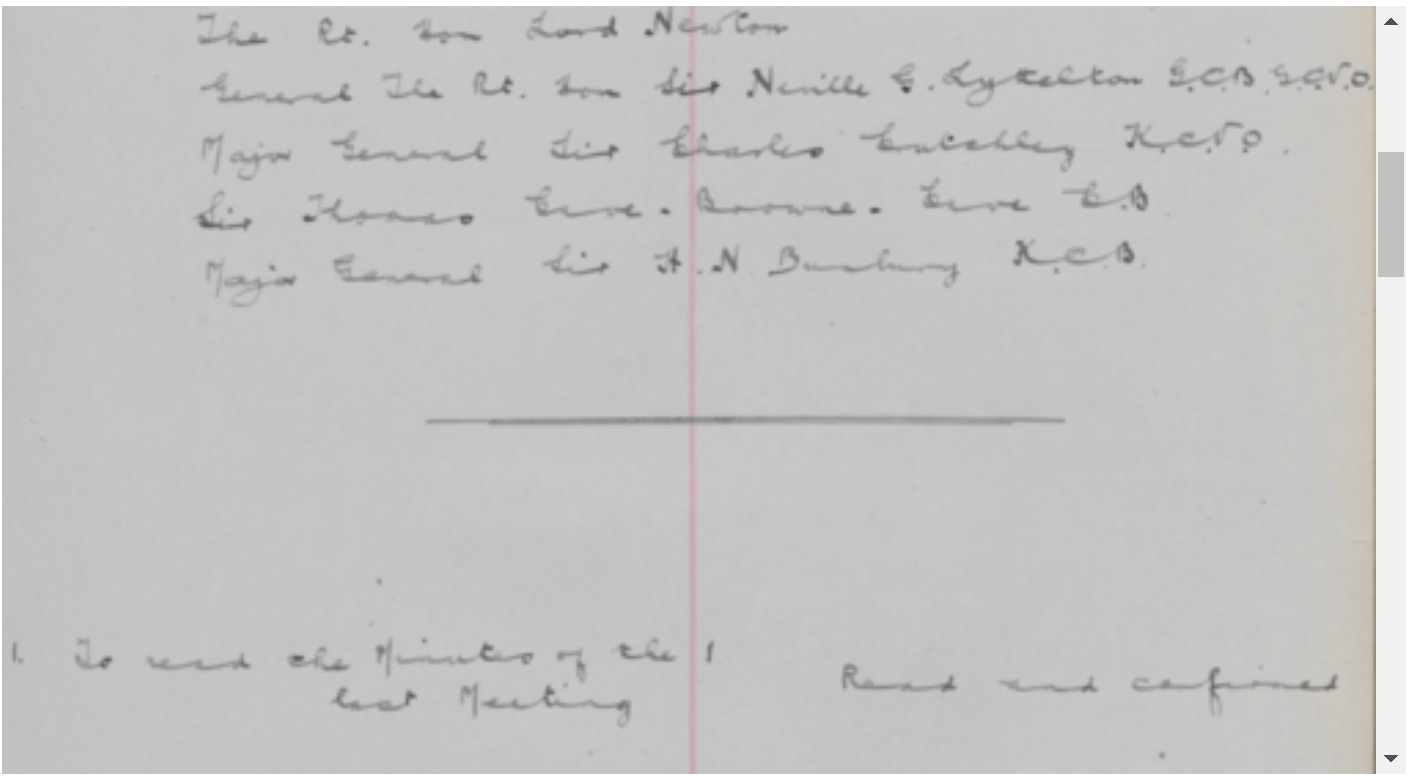 The Rt. Hon Lord Newton
General The Rt. Hon Sir Neville G. Lyttelton G.C.B. G.C.V.O.
Major General Sir Charles Crutchley K.C.V.O.
Sir Thomas Cave-Browne-Cave C.B.
Major General Sir H. N Bunbury K.C.B.
1. To read the Minutes of the 1
last Meeting
Read and confirmed